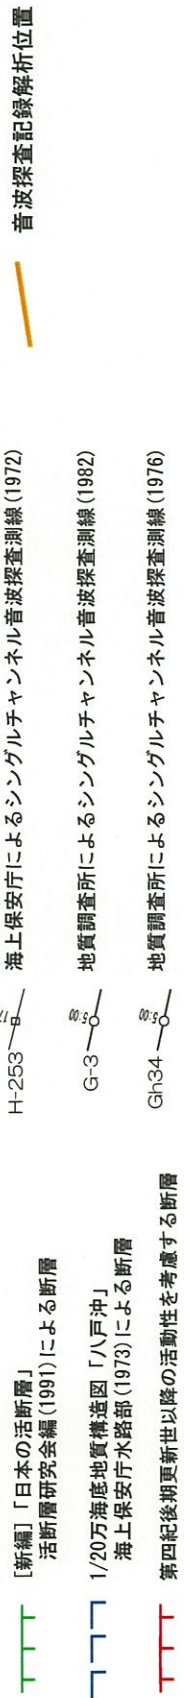 [新編]「日本の活断層」
活断層研究会編(1991)による断層
1/20万海底地質構造図「八戸沖」
海上保安庁水路部(1973)による断層
第四紀後期更新世以降の活動性を考慮する断層
H-253
海上保安庁によるシングルチャンネル音波探査測線(1972)
G-3
5:00
地質調査所によるシングルチャンネル音波探査測線(1982)
Gh34
5:00
地質調査所によるシングルチャンネル音波探査測線(1976)
音波探査記録解析位置